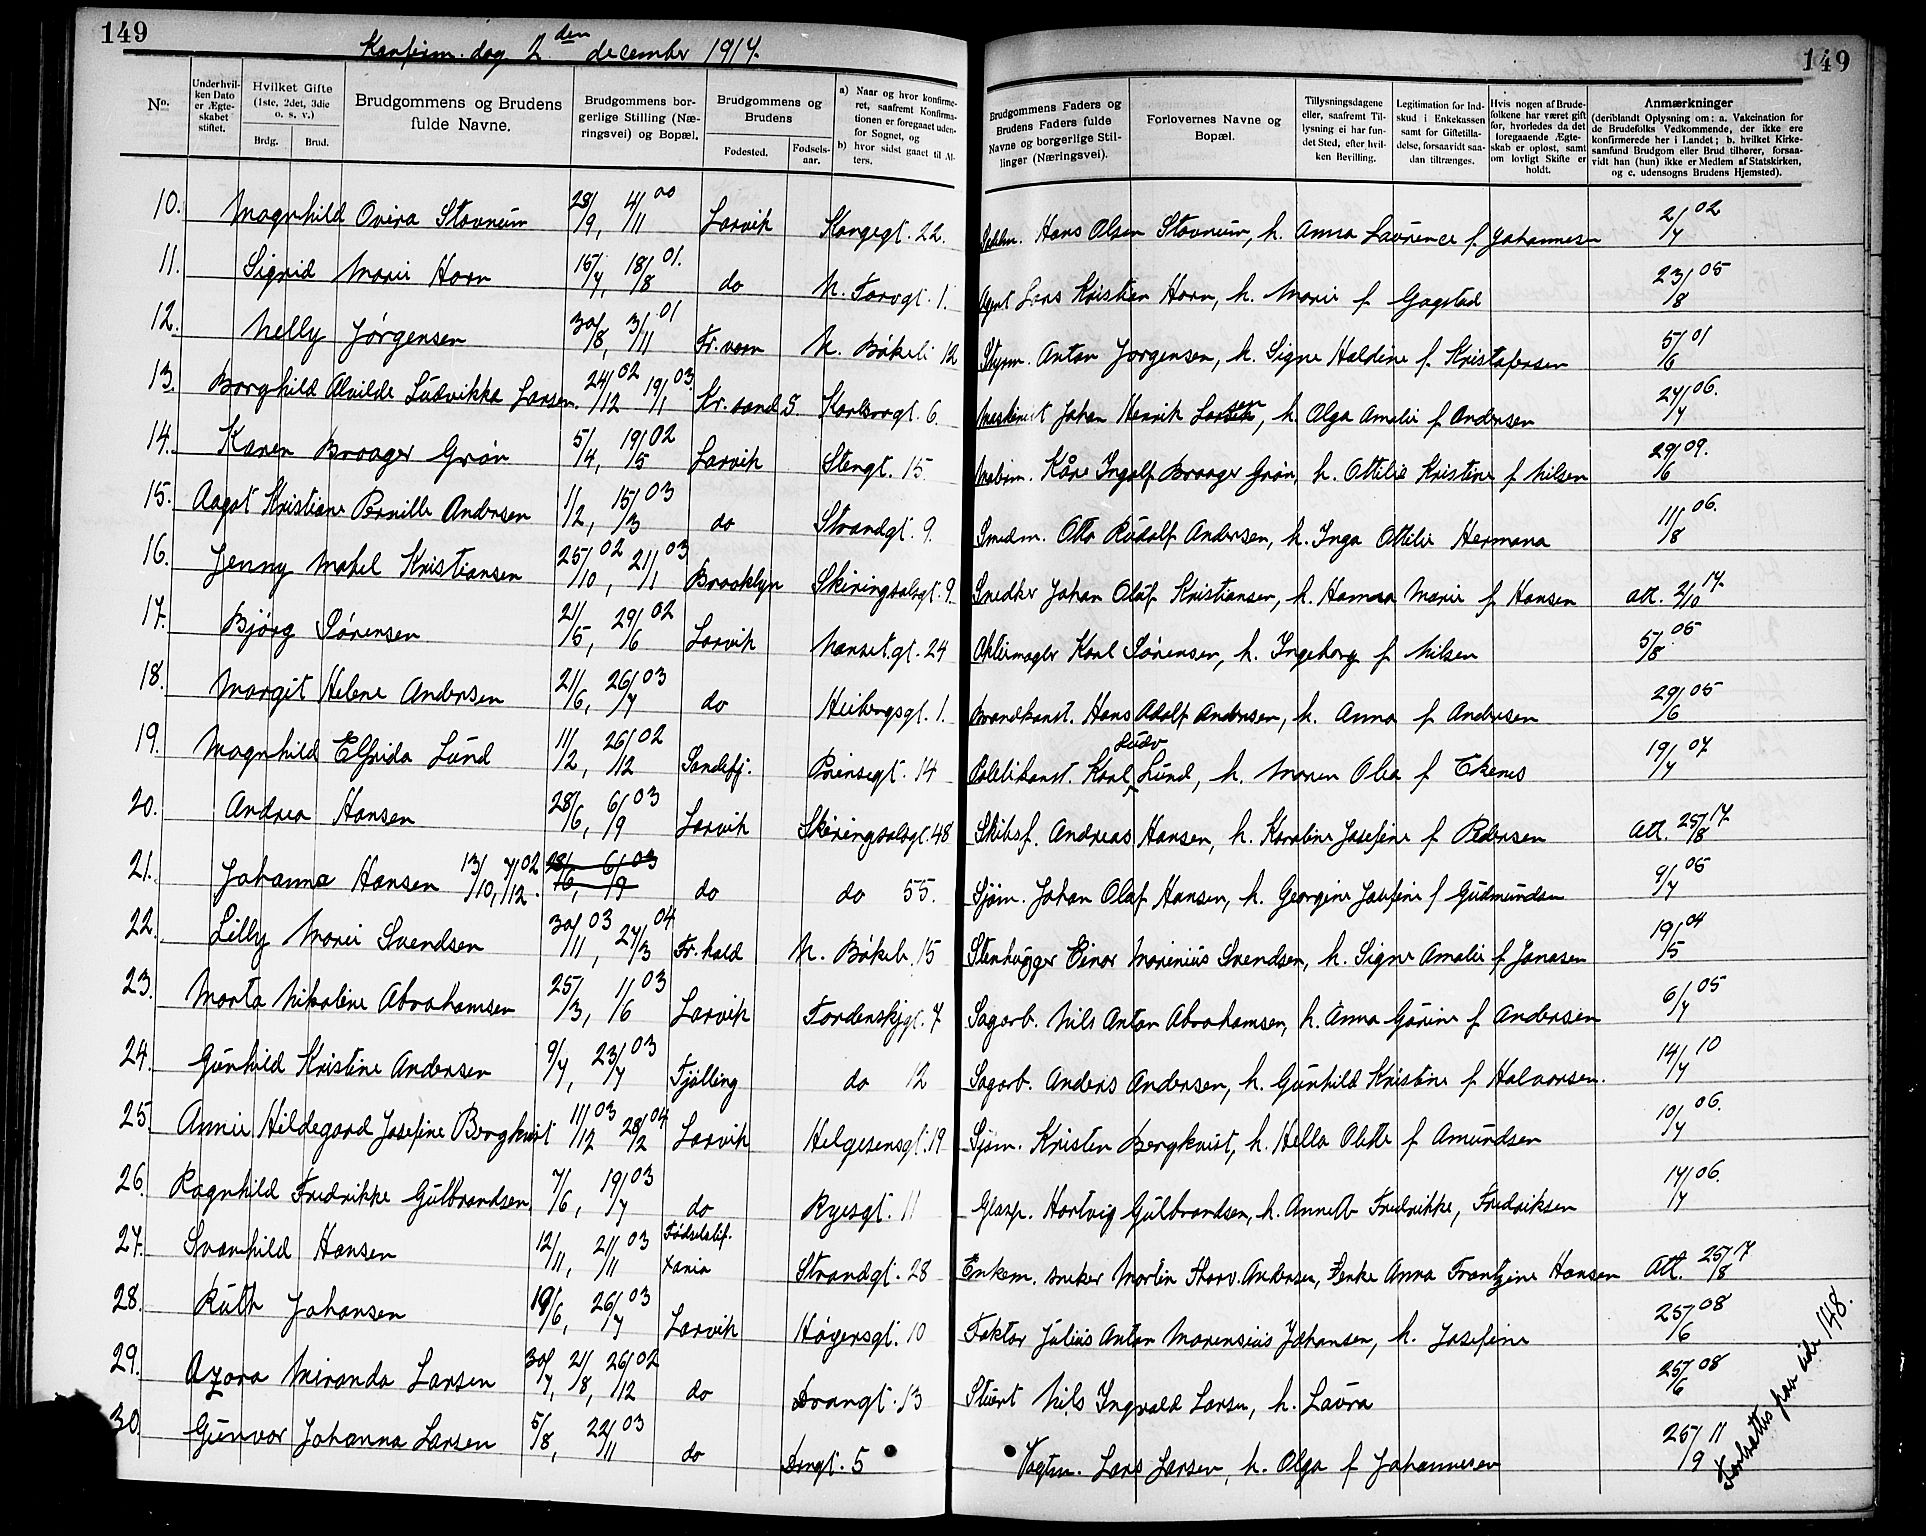 149
Konfirm. dag 2den december 1917.
No.
Under hvilken Dato er Ægteskabet stiftet.
Hvilket Gifte (1ste, 2det, 3die o. s. v.)
Brdg. Brud.
Brudgommens og Brudens fulde Navne.
Brudgommens borgerlige Stilling (Næringsvei) og Bopæl.
Brudgommens og Brudens
Fødested. Fødselsaar.
a) Naar og hvor konfirmeret, saafremt Konfirmationen er foregaaet udenfor Sognet, og
b) hvor sidst gaaet til Alters.
10. Magnhild Ovira Stovnum 28/9, 4/11 00 Larvik Kongegt. 22.
11. Sigrid Marie Horn 15/7, 18/8 01. do N. Torvgt. 1.
12. Nelly Jørgensen 30/8, 3/11 01 Fr.værn N. Bökeli 12
13. Borghild Alvilde Ludvikka Larsen. 24/12 02 19/1 03. Kr.sand S. Karlsrogt. 6.
14. Karen Braager Grön 5/4, 19/5 02 Larvik Stengt. 15.
15. Aagot Kristiane Pernille Andersen 1/2, 15/3 03 do Strandgt. 9.
16. Jenny Mabel Kristiansen 25/10 02, 21/1 03 Brooklyn Skiringsalsgt. 9.
17. Bjørg Sørensen 21/5, 29/6 02 Larvik Nansetgt. 24
18. Margit Helene Andersen 21/6, 26/7 03 do Heibergsgt. 1.
19. Magnhild Elfrida Lund 11/2, 26/12 02 Sandefj. Prinsegt. 14
20. Andrea Hansen 28/6, 6/9 03 Larvik Skiringsalsgt. 48
21. Johanna Hansen 13/10, 7/12 02 28/6, 6/9 03 do do 55.
22. Lilly Marie Svendsen 30/11 03, 27/3 04 Fr.hald N. Bökeli 15
23. Marta Nikoline Abrahamsen 25/3, 11/6 03 Larvik Tordenskjgt. 7
24. Gunhild Kristine Andersen 9/7, 23/7 03 Tjølling do 12
25. Annie Hildegard Josefine Bergkvist 11/12 03 28/2 04 Larvik Helgesensgt. 19
26. Ragnhild Fredrikke Gulbrandsen 7/6, 19/7 03 do Ryesgt. 11
27. Svanhild Hansen 12/11, 21/11 03 Fødselstif. Xania Strandgt. 28
28. Ruth Johansen 19/6, 26/7 03 Larvik Høyersgt. 10
29. Azora Miranda Larsen 30/7, 21/8, 26/12 02 do Dronngt. 13
30 Gunvor Johanna Larsen 5/8, 22/11 03 do Drngt. 5
149
Brudgommens Faders og Brudens Faders fulde Navne og borgerlige Stillinger (Næringsvei).
Forlovernes Navne og Bopæl.
Tillysningsdagene eller, saafremt Tillysning ei har fundet Sted, efter hvilken Bevilling.
Legitimation for Indskud i Enkekassen samt for Giftetilladelse, forsaavidt saadan tiltrænges.
Hvis nogen af Brudefolkene har været gift før, hvorledes da det foregaaende Ægteskab er opløst, samt om lovligt Skifte er holdt.
Anmærkninger
(deriblandt Oplysning om: a. Vakcination for de Brudefolks Vedkommende, der ikke ere konfirmerede her i Landet; b. hvilket Kirkesamfund Brudgom eller Brud tilhører, forsaavidt han (hun) ikke er Medlem af Statskirken, og c. udensogns Brudens Hjemsted).
Hans Olsen Stovnum, h. Anna Laurence f Johannesen 2/7 02
Agent Lars Kristian Horn, h. Marie f Gogstad 23/8 05
Styrm. Anton Jörgensen, h. Signe Haldine f. Kristofersen 5/6 01
Maskinist Johan Henrik Larsen, h. Olga Amalie f Andersen 27/7 06.
Malerm. Kåre Ingolf Braager Grön, h. Ottilie Kristine f Nilsen 29/6 09.
Smedm. Otto Rudolf Andersen, h. Inga Ottilie Hermana 11/8 06.
Snedker Johan Oluf Kristiansen, h. Hanna Marie f Hansen att. 2/10 17.
Aktiemægler Karl Sørensen, h. Ingeborg f Nilsen 5/8 05
Brandkonst. Hans Adolf Andersen, h. Anna f Andersen 29/6 05
Politikonst. Karl Ludv Lund, h. Maren Olea f Ekenes 19/7 07
Skibsf. Andreas Hansen, h. Karoline Josefine f Pedersen Att. 25/8 17.
Sjöm. Johan Olaf Hansen, h. Georgine Josefine f Gudmundsen 9/7 05
Stenhugger Einar Marinius Svendsen, h. Signe Amalie f Jonasen 19/5 04
Sagarb. Nils Anton Abrahamsen, h. Anna Gurine f Andersen 6/7 05
Sagarb. Anders Andersen, h. Gunhild Kristine f Halvorsen. 14/7 10
Sjöm. Kristen Bergkvist, h. Hella Olette f Amundsen 10/7 06.
Glasp. Hartvig Gulbrandsen, h. Annette Fredrikke, Fredriksen 17/7 06.
Enkem. snekker Martin Thorv. Andersen, Penke Anna Frantzine Hansen Att. 25/8 17
Faktor Julius Anton Marensius Johansen, h. Josefine 25/6 08
Stuert Nils Ingvald Larsen, h. Laura 25/6 08
Vagtm. Lars Larsen, h. Olga f Johannesen 25/9 11
Fortsættes paa side 148.